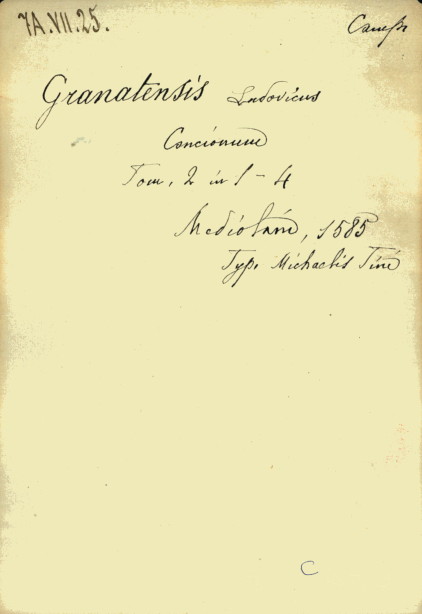 7A.VII.25.
Granatensis Ludovicus
Concionum
Tom. 2 in 1 - 4
Mediolani, 1585
Typ. Michaelis Tini
C